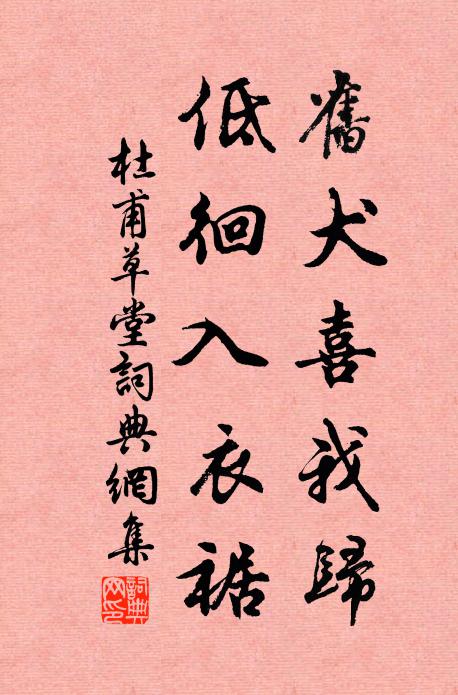 舊犬喜我歸
低徊入衣裾
杜甫草堂詞典網集
詞典網印